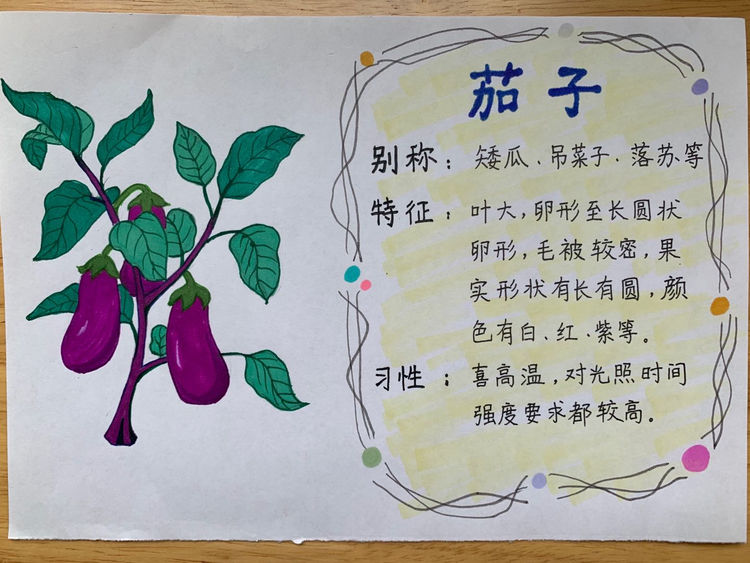 茄子
别称：矮瓜、吊菜子、落苏等
特征：叶大，卵形至长圆状
卵形，毛被较密，果
实形状有长有圆，颜
色有白、红、紫等。
习性：喜高温，对光照时间
强度要求都较高。